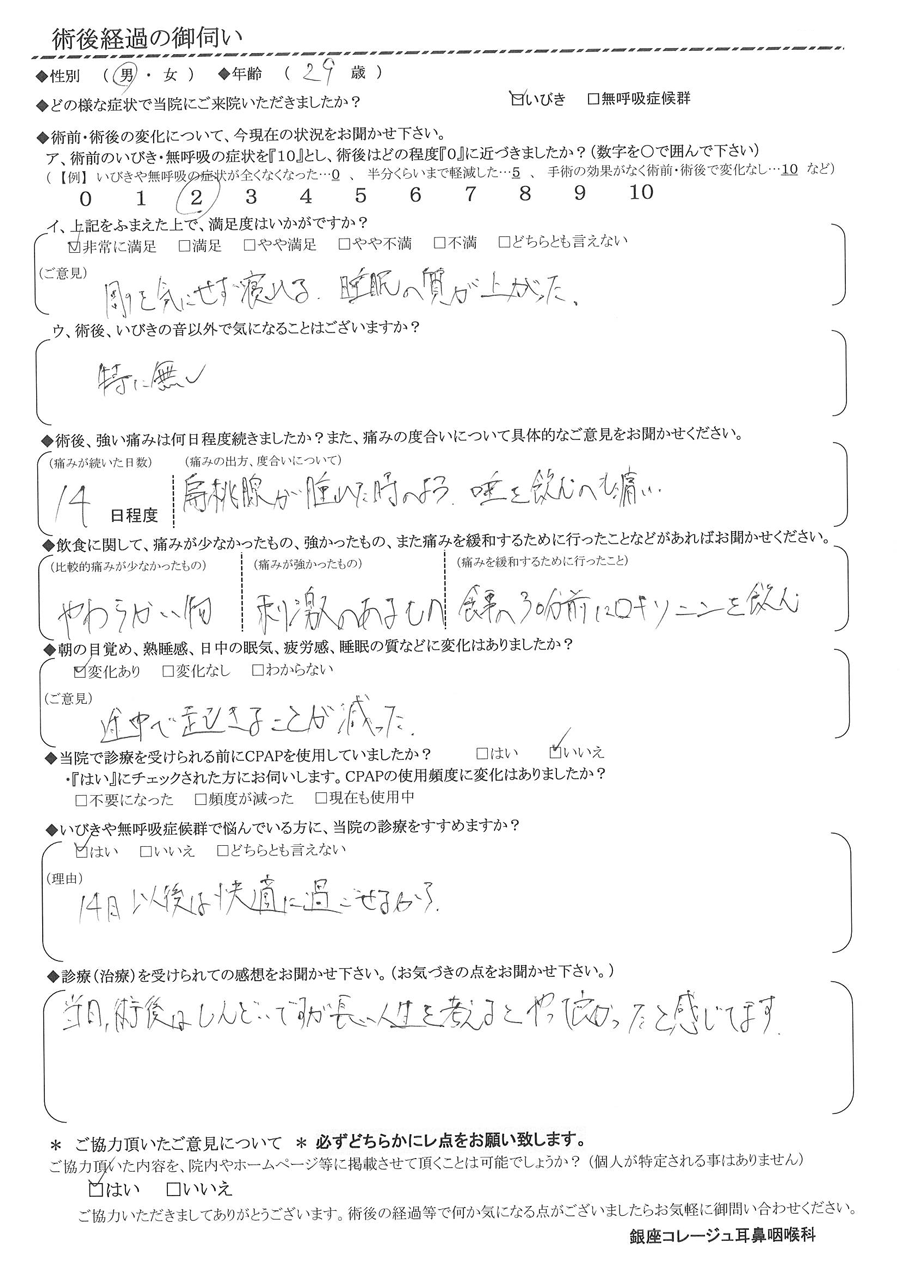 術後経過の御伺い
◆性別 （ 男 ・ 女 ） ◆年齢 （ 29 歳 ）
◆どの様な症状で当院にご来院いただきましたか？ ☑いびき □無呼吸症候群
◆術前・術後の変化について、今現在の状況をお聞かせ下さい。
ア、術前のいびき・無呼吸の症状を『10』とし、術後はどの程度『0』に近づきましたか？（数字を〇で囲んで下さい）
（【例】 いびきや無呼吸の症状が全くなくなった…0 、 半分くらいまで軽減した…5 、 手術の効果がなく術前・術後で変化なし…10 など）
0 1 2 3 4 5 6 7 8 9 10
イ、上記をふまえた上で、満足度はいかがですか？
☑非常に満足 □満足 □やや満足 □やや不満 □不満 □どちらとも言えない
(ご意見)
周りを気にせず寝れる. 睡眠の質が上がった。
ウ、術後、いびきの音以外で気になることはございますか？
特に無し
◆術後、強い痛みは何日程度続きましたか？また、痛みの度合いについて具体的なご意見をお聞かせください。
(痛みが続いた日数) (痛みの出方、度合いについて)
14 日程度 扁桃腺が腫れた時のよう. 唾を飲むのも痛い.
◆飲食に関して、痛みが少なかったもの、強かったもの、また痛みを緩和するために行ったことなどがあればお聞かせください。
(比較的痛みが少なかったもの) (痛みが強かったもの) (痛みを緩和するために行ったこと)
やわらかい物 刺激のあるもの 食事の30分前にロキソニンを飲む
◆朝の目覚め、熟睡感、日中の眠気、疲労感、睡眠の質などに変化はありましたか？
☑変化あり □変化なし □わからない
(ご意見)
途中で起きることが減った.
◆当院で診療を受けられる前にCPAPを使用していましたか？ □はい ☑いいえ
・『はい』にチェックされた方にお伺いします。CPAPの使用頻度に変化はありましたか？
□不要になった □頻度が減った □現在も使用中
◆いびきや無呼吸症候群で悩んでいる方に、当院の診療をすすめますか？
☑はい □いいえ □どちらとも言えない
(理由)
14日以後は快適に過ごせるから.
◆診療（治療）を受けられての感想をお聞かせ下さい。（お気づきの点をお聞かせ下さい。）
当日,術後はしんどいですが長い人生を考えるとやって良かったと感じてます.
＊ ご協力頂いたご意見について ＊ 必ずどちらかにレ点をお願い致します。
ご協力頂いた内容を、院内やホームページ等に掲載させて頂くことは可能でしょうか？（個人が特定される事はありません）
☑はい □いいえ
ご協力いただきましてありがとうございます。術後の経過等で何か気になる点がございましたらお気軽に御問い合わせください。
銀座コレージュ耳鼻咽喉科